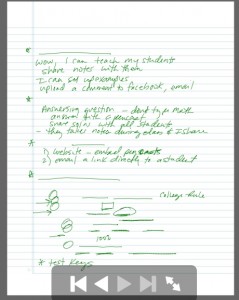 Wow, I can teach my students
share notes with them
I can set up examples,
upload a comment to facebook, email
Answering question - don't type math
answer with a pencast
share soln with all students
- they take notes during class & I share
1) website - embed pencasts
2) email a link directly to a student
College-Rule
* test keys